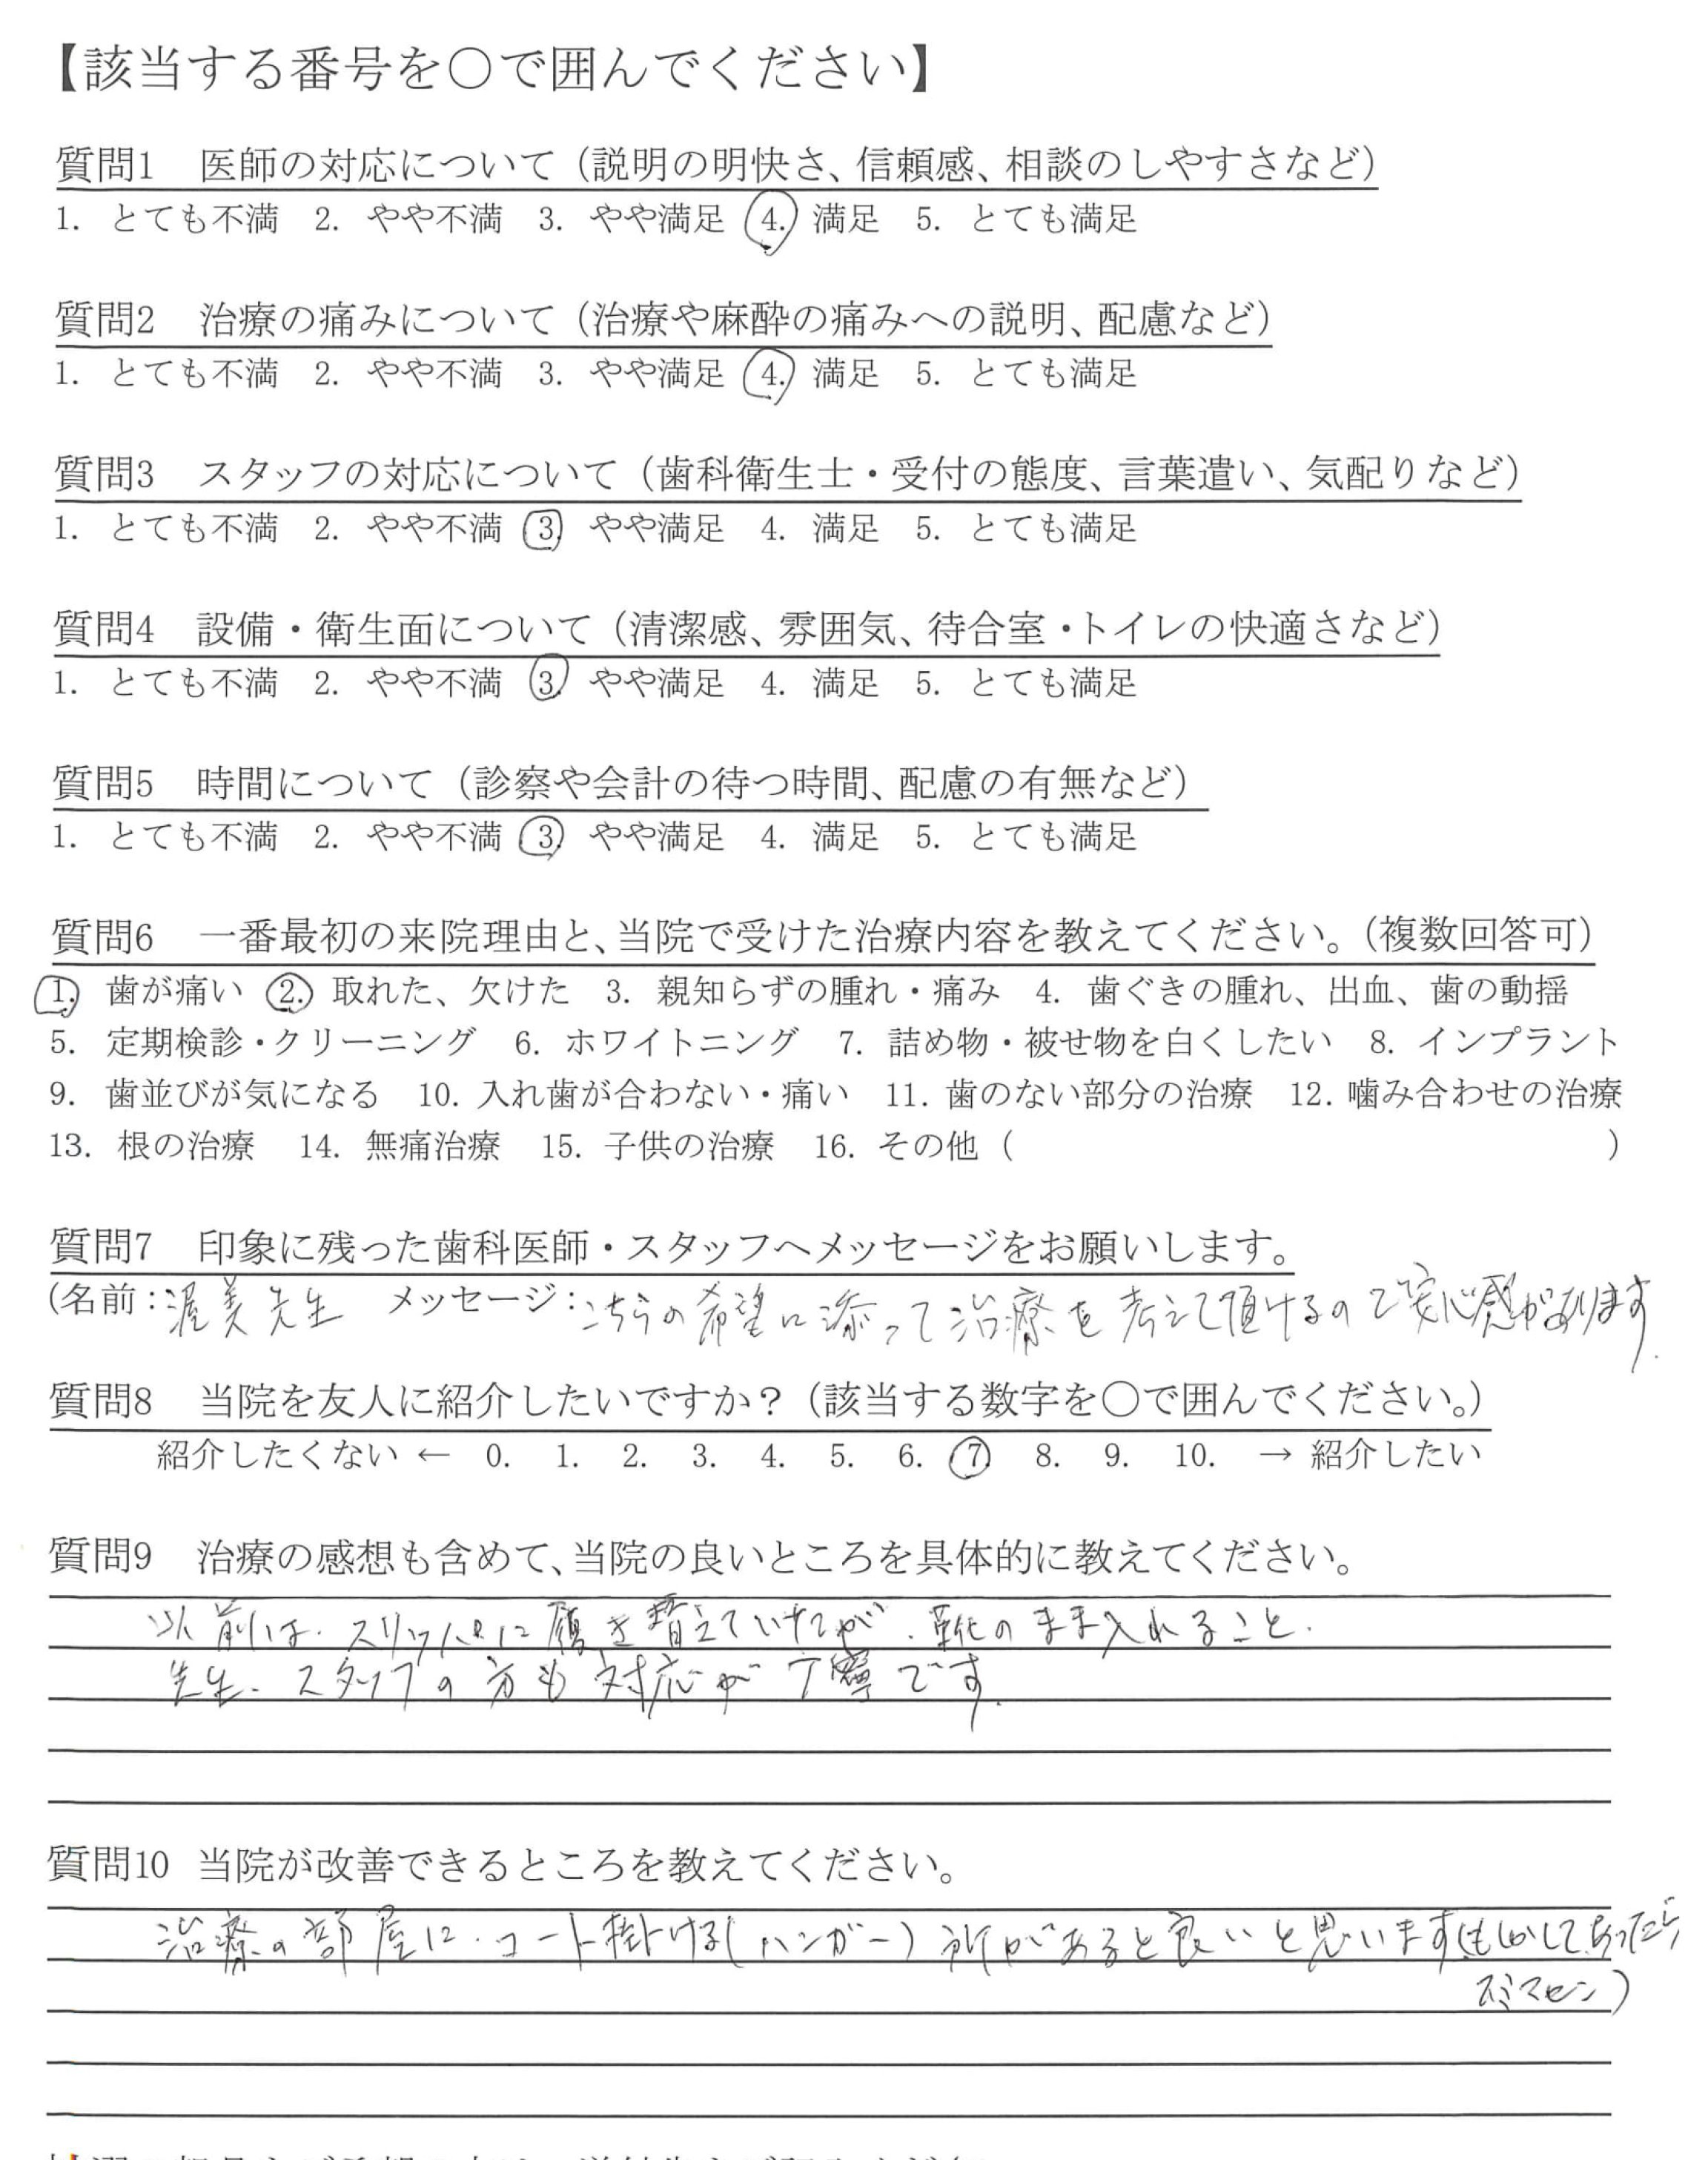 【該当する番号を〇で囲んでください】
質問1　医師の対応について（説明の明快さ、信頼感、相談のしやすさなど）
1. とても不満　2. やや不満　3. やや満足　4. 満足　5. とても満足
質問2　治療の痛みについて（治療や麻酔の痛みへの説明、配慮など）
1. とても不満　2. やや不満　3. やや満足　4. 満足　5. とても満足
質問3　スタッフの対応について（歯科衛生士・受付の態度、言葉遣い、気配りなど）
1. とても不満　2. やや不満　3. やや満足　4. 満足　5. とても満足
質問4　設備・衛生面について（清潔感、雰囲気、待合室・トイレの快適さなど）
1. とても不満　2. やや不満　3. やや満足　4. 満足　5. とても満足
質問5　時間について（診察や会計の待つ時間、配慮の有無など）
1. とても不満　2. やや不満　3. やや満足　4. 満足　5. とても満足
質問6　一番最初の来院理由と、当院で受けた治療内容を教えてください。（複数回答可）
1. 歯が痛い　2. 取れた、欠けた　3. 親知らずの腫れ・痛み　4. 歯ぐきの腫れ、出血、歯の動揺
5. 定期検診・クリーニング　6. ホワイトニング　7. 詰め物・被せ物を白くしたい　8. インプラント
9. 歯並びが気になる　10. 入れ歯が合わない・痛い　11. 歯のない部分の治療　12. 噛み合わせの治療
13. 根の治療　14. 無痛治療　15. 子供の治療　16. その他（　）
質問7　印象に残った歯科医師・スタッフへメッセージをお願いします。
(名前：渥美先生　メッセージ：こちらの希望に添って治療を考えて頂けるので安心感があります.
質問8　当院を友人に紹介したいですか？（該当する数字を〇で囲んでください。）
紹介したくない ← 0. 1. 2. 3. 4. 5. 6. 7 8. 9. 10. → 紹介したい
質問9　治療の感想も含めて、当院の良いところを具体的に教えてください。
以前は、スリッパに履き替えていたが、靴のまま入れること.
先生、スタッフの方も対応が丁寧です.
質問10　当院が改善できるところを教えてください。
治療の部屋に、コート掛ける(ハンガー)所があると良いと思います(もしかしてあったら
スミマセン)